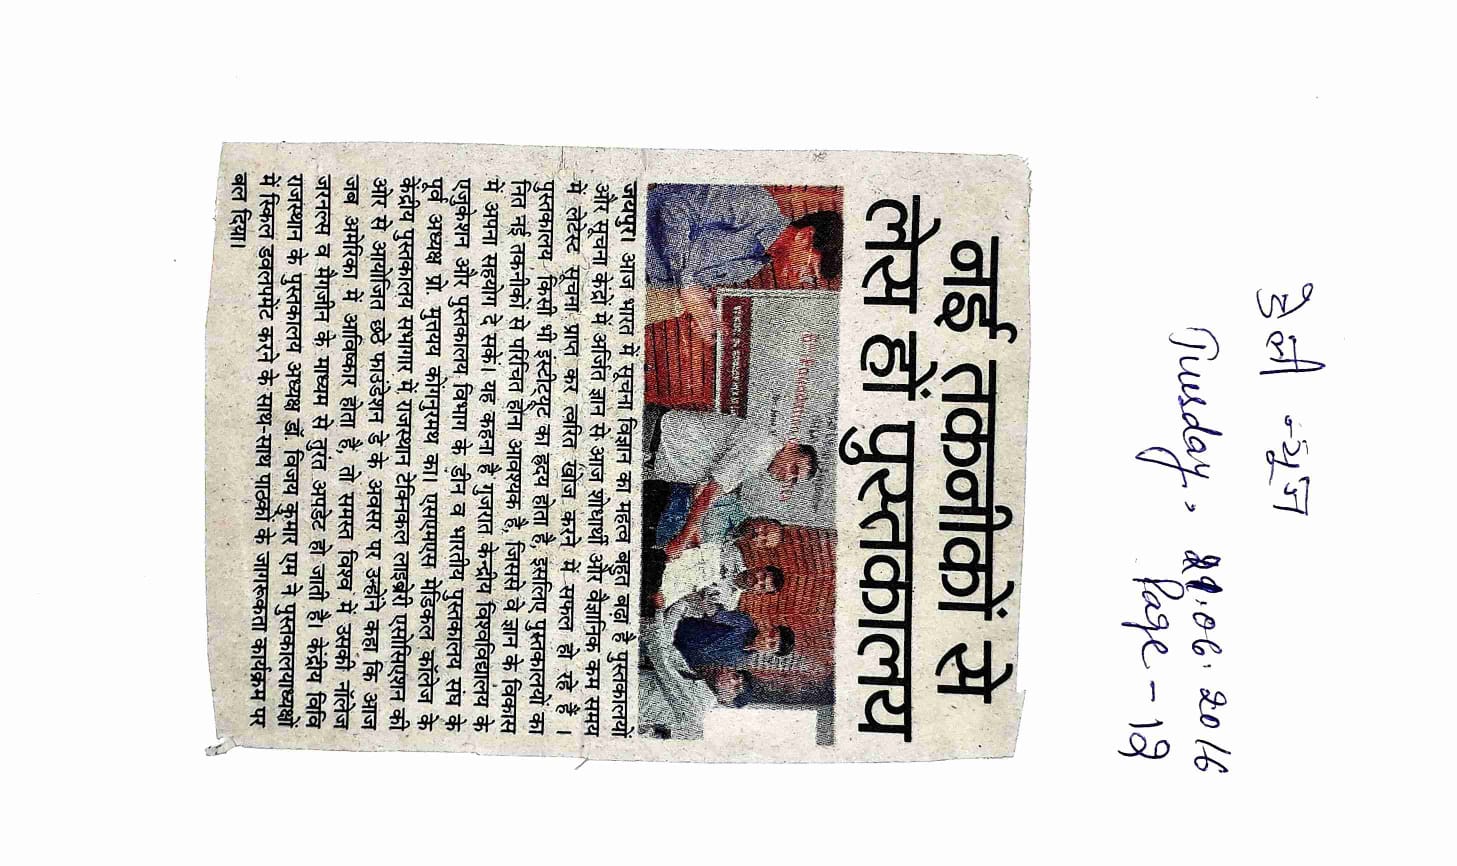 डेली न्यूज
Tuesday, 21.06.2016
Page - 12
नई तकनीकों से
लेस हों पुस्तकालय
6th Foundation
जयपुर। आज भारत में सूचना विज्ञान का महत्व बहुत बड़ा है पुस्तकालयों
और सूचना केंद्रों में अर्जित ज्ञान से आज शोधार्थी और वैज्ञानिक कम समय
में लेटेस्ट सूचना प्राप्त कर त्वरित खोज करने में सफल हो रहे हैं ।
पुस्तकालय किसी भी इंस्टीट्यूट का हृदय होता है, इसलिए पुस्तकालयों का
नित नई तकनीकों से परिचित होना आवश्यक है, जिससे वे ज्ञान के विकास
में अपना सहयोग दे सकें। यह कहना है गुजरात के केन्द्रीय विश्वविद्यालय के
एजुकेशन और पुस्तकालय विभाग के डीन व भारतीय पुस्तकालय संघ के
पूर्व अध्यक्ष प्रो. मुतयय कोगनुरमथ का। एसएमएस मेडिकल कॉलेज के
केंद्रीय पुस्तकालय सभागार में राजस्थान टेक्निकल लाइब्रेरी एसोसिएशन की
ओर से आयोजित छठे फाउंडेशन डे के अवसर पर उन्होंने कहा कि आज
जब अमेरिका में आविष्कार होता है, तो समस्त विश्व में उसकी नॉलेज
जरनल्स व मैगजीन के माध्यम से तुरंत अपडेट हो जाती है। केंद्रीय विवि
राजस्थान के पुस्तकालय अध्यक्ष डॉ. विजय कुमार एम ने पुस्तकालयाध्यक्षों
में स्किल डवलपमेंट करने के साथ-साथ पाठकों के जागरूकता कार्यक्रम पर
बल दिया।